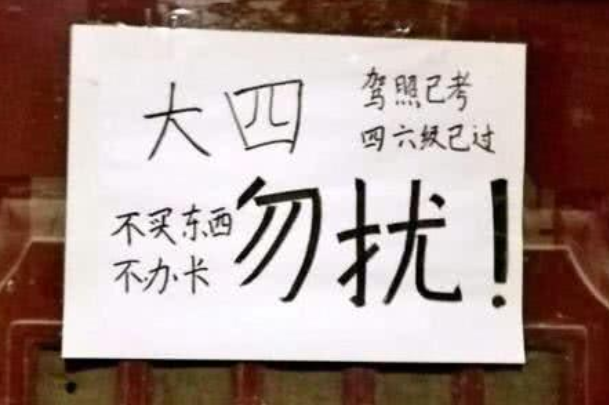 大四
驾照已考
四六级已过
不买东西
不办卡
勿扰！